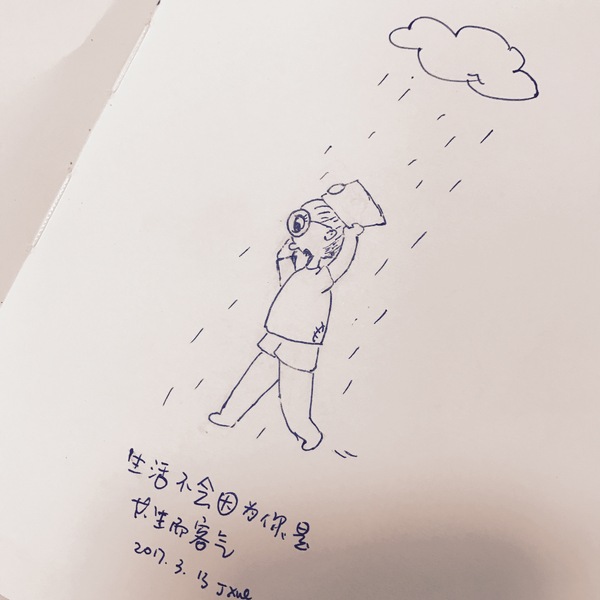 生活不会因为你是
女生而客气
2017.3.13 Jxue